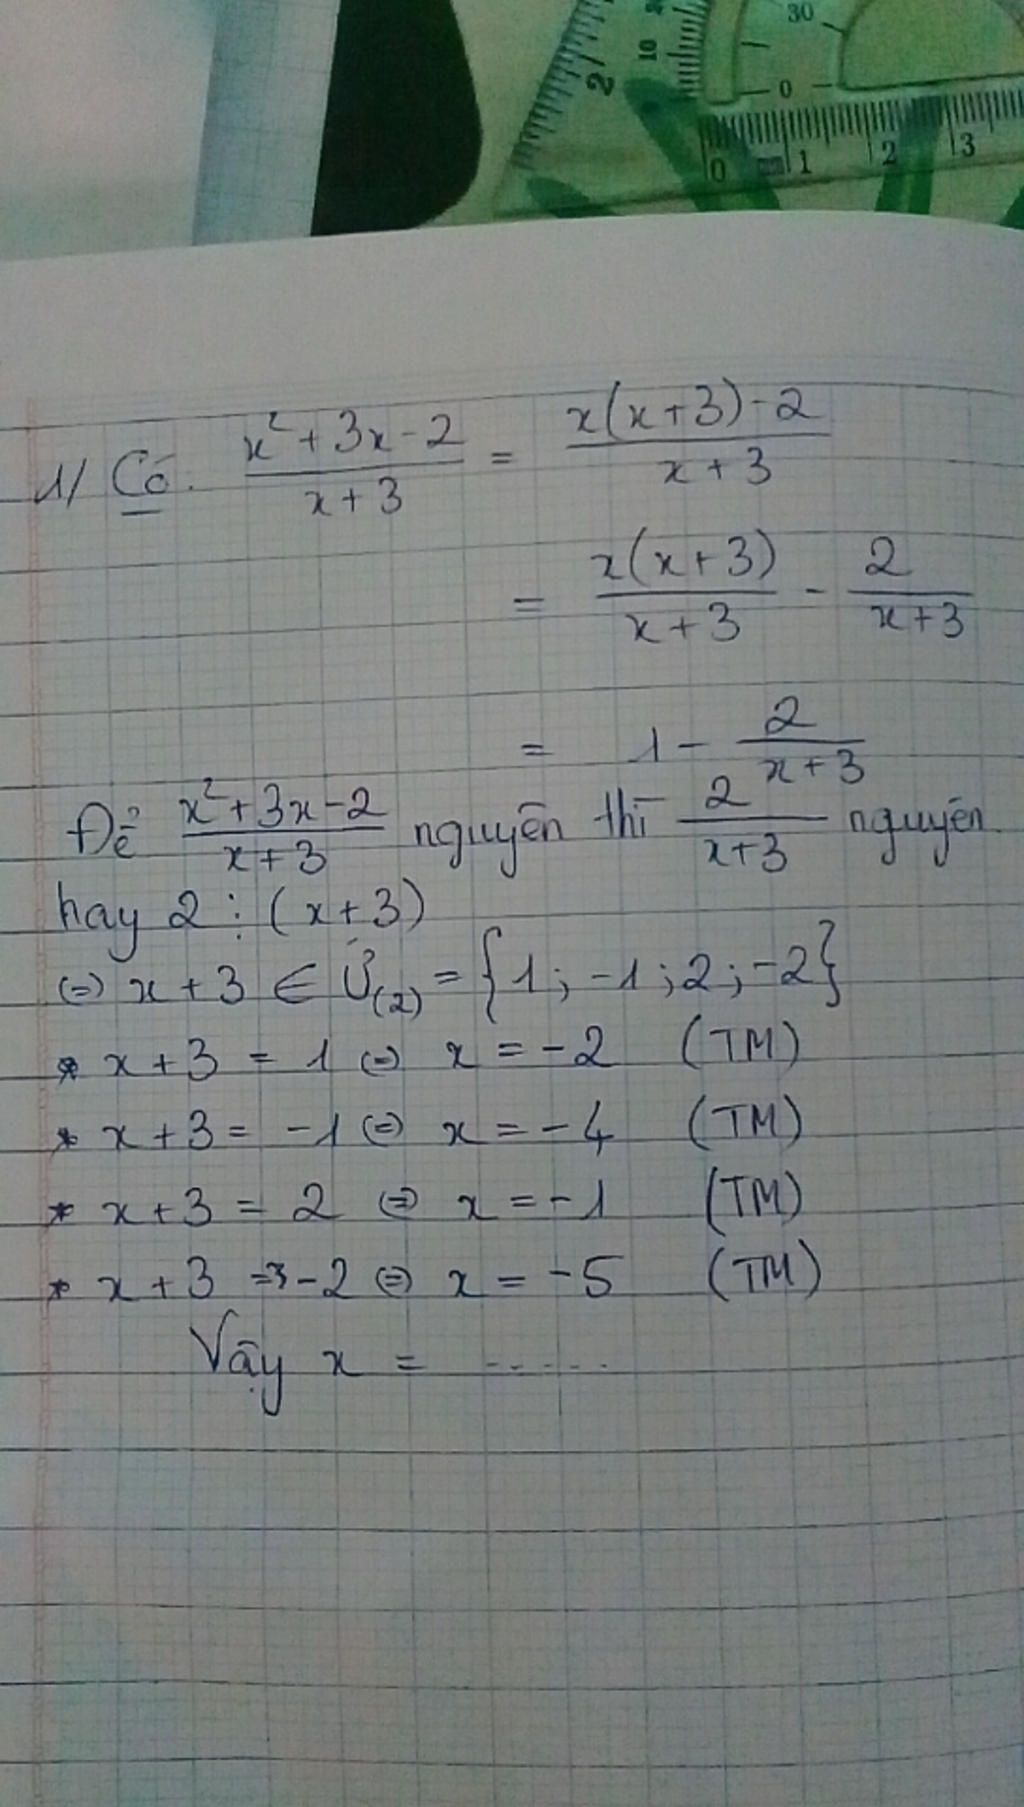 30
2 10 0
0 1 2 3
1/ Có. (x² + 3x - 2)/(x + 3) = (x(x+3) - 2)/(x + 3)
= (x(x+3))/(x + 3) - 2/(x+3)
= 1 - 2/(x+3)
Để (x² + 3x - 2)/(x + 3) nguyên thì 2/(x+3) nguyên.
hay 2 ⋮ (x+3)
(=) x + 3 ∈ Ư(2) = {1; -1; 2; -2}
* x + 3 = 1 (=) x = -2 (TM)
* x + 3 = -1 (=) x = -4 (TM)
* x + 3 = 2 (=) x = -1 (TM)
* x + 3 = -2 (=) x = -5 (TM)
Vậy x = ......